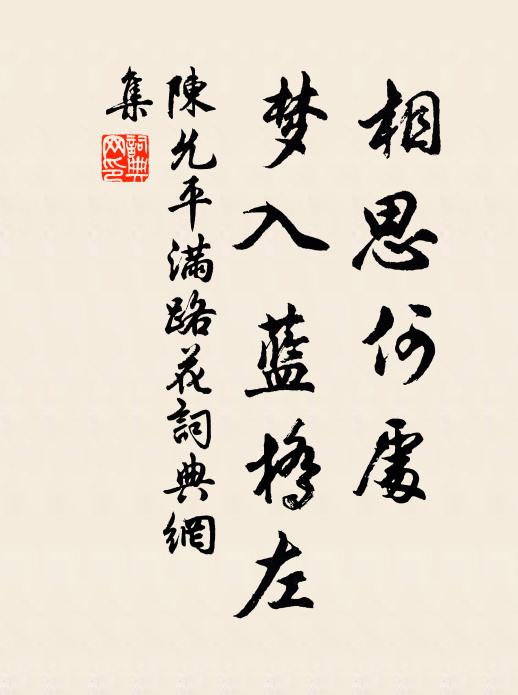 相思何處
梦入藍橋左
陳允平满路花詞典網
集
詞典網印